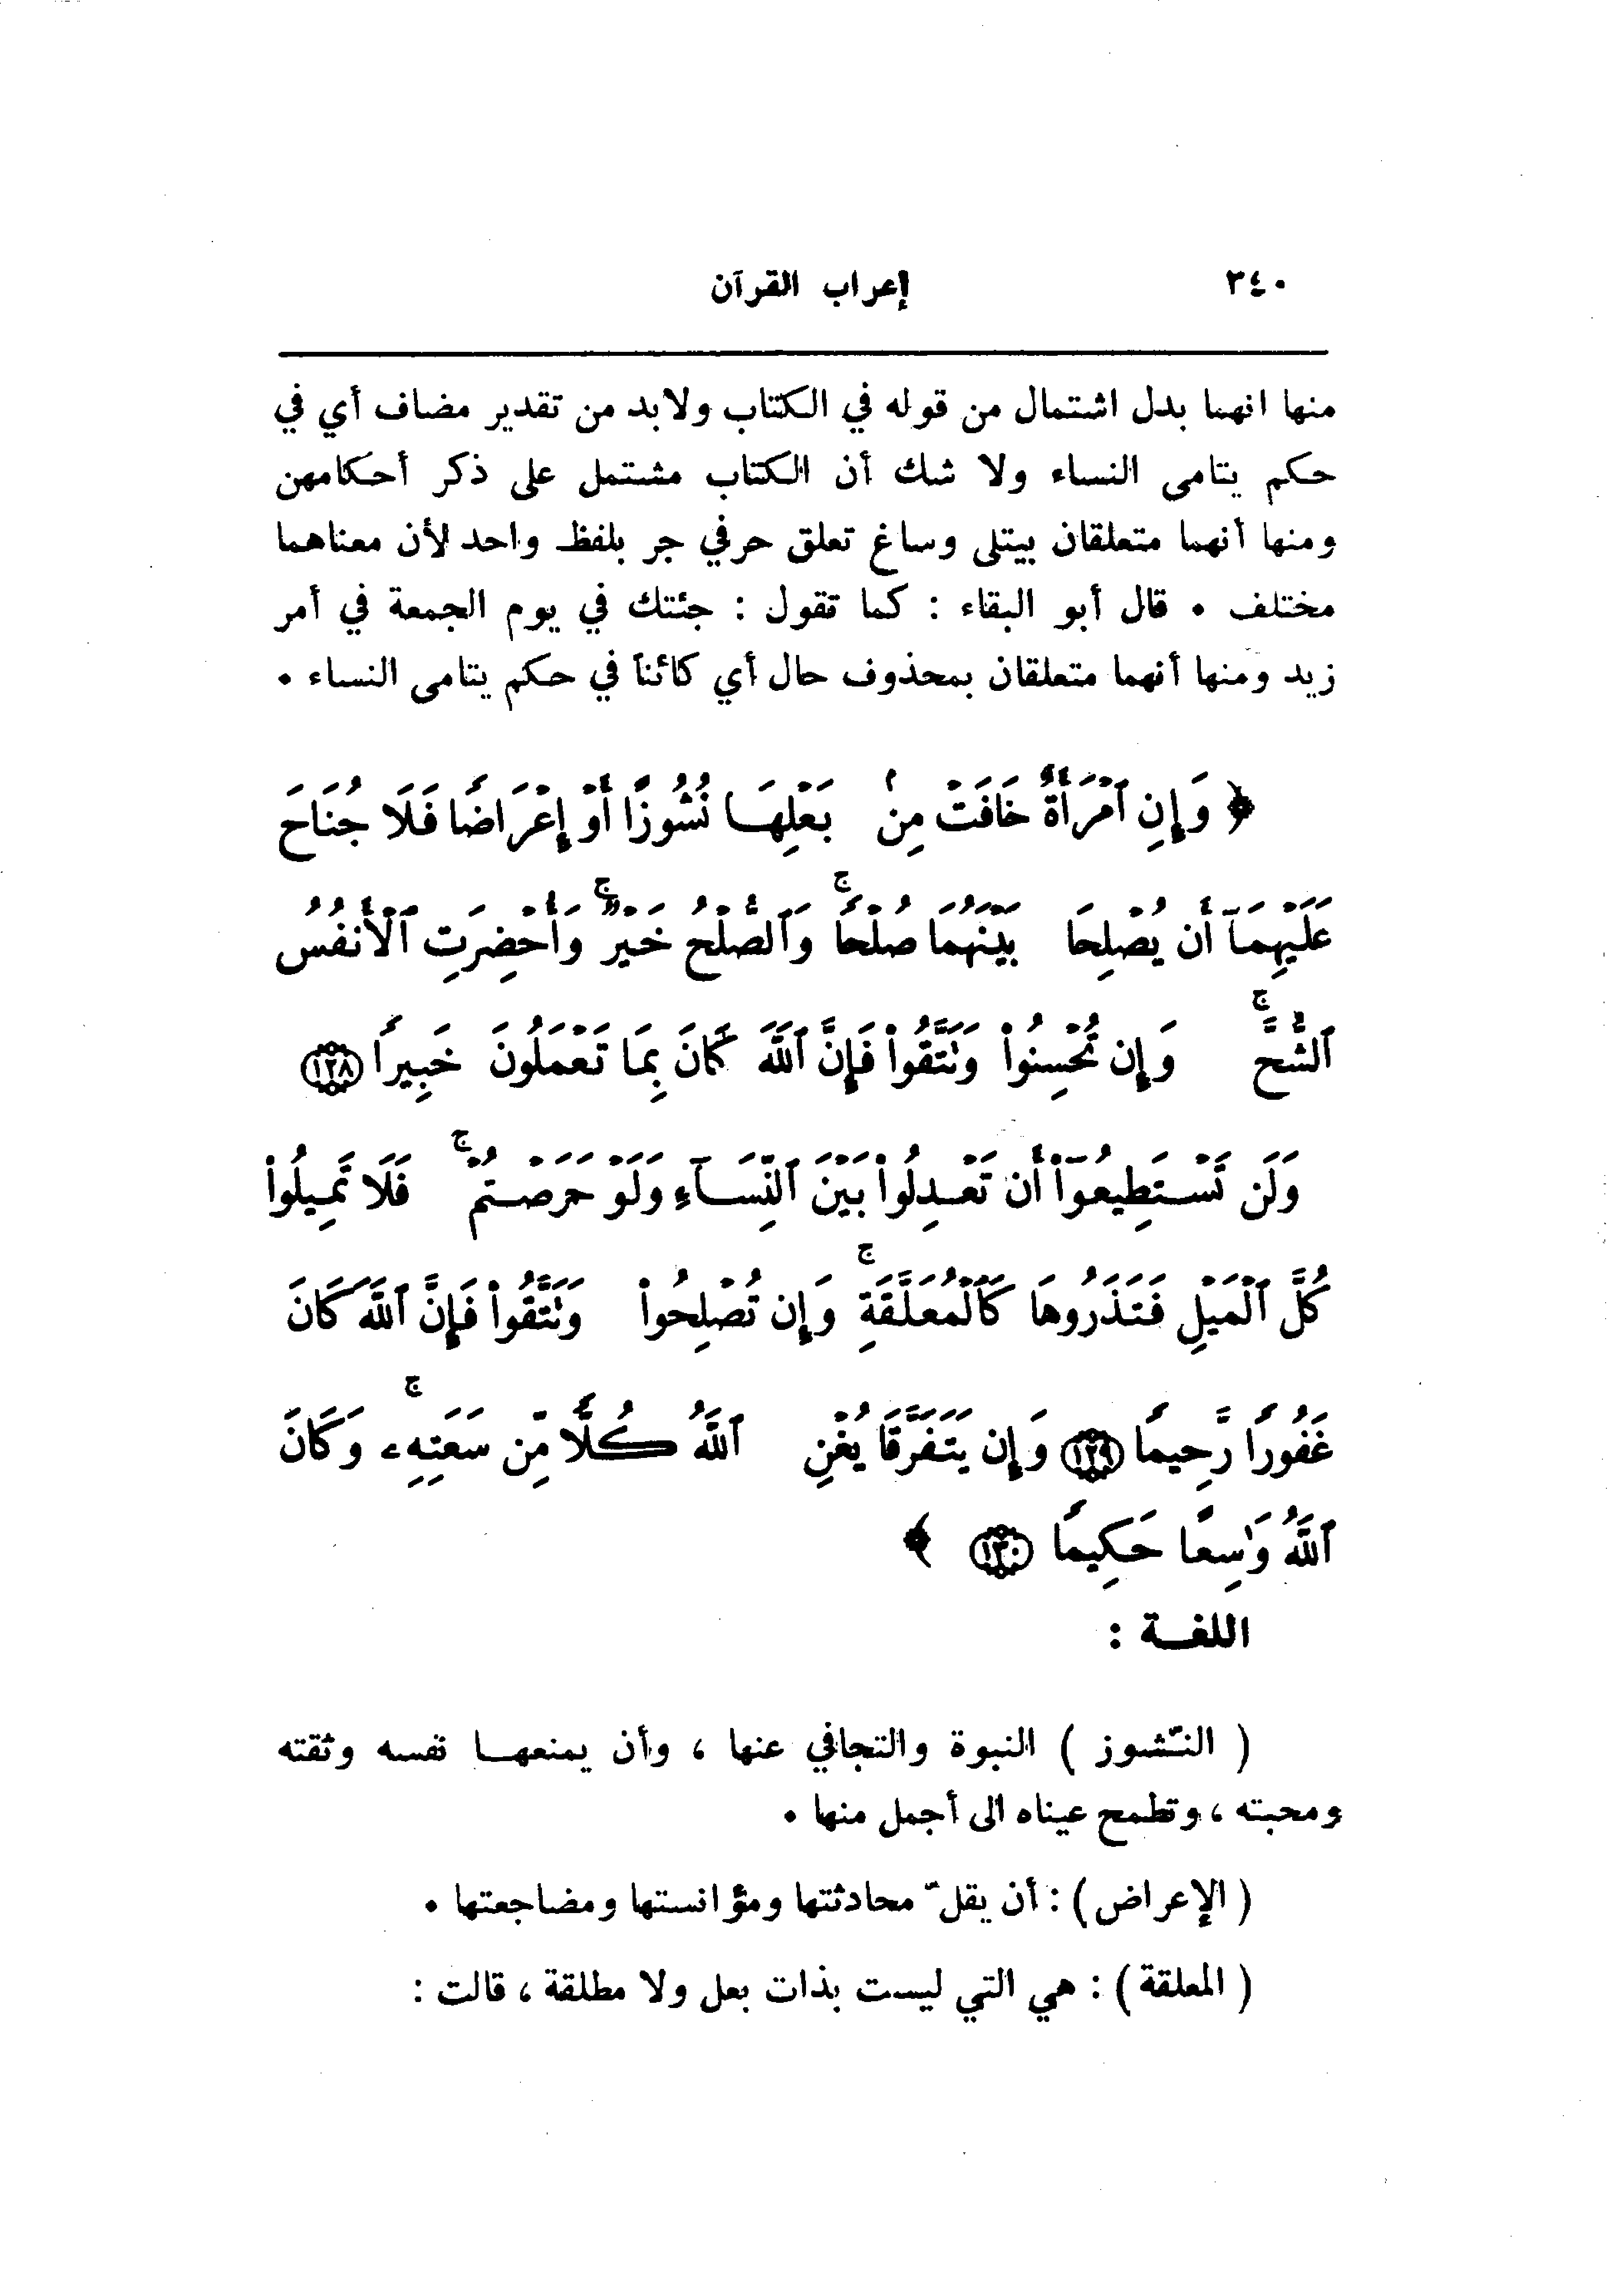 ٣٤٠ إعراب القرآن
منها انهما بدل اشتمال من قوله في الكتاب ولابد من تقدير مضاف أي في
حكم يتامى النساء ولا شك أن الكتاب مشتمل على ذكر أحكامهن
ومنها أنهما متعلقان بيتلى وساغ تعلق حرفي جر بلفظ واحد لأن معناهما
مختلف . قال أبو البقاء : كما تقول : جئتك في يوم الجمعة في أمر
زيد ومنها أنهما متعلقان بمحذوف حال أي كائناً في حكم يتامى النساء .
﴿ وَإِنِ ٱمْرَأَةٌ خَافَتْ مِنۢ بَعْلِهَا نُشُوزًا أَوْ إِعْرَاضًا فَلَا جُنَاحَ
عَلَيْهِمَآ أَن يُصْلِحَا بَيْنَهُمَا صُلْحًاۚ وَٱلصُّلْحُ خَيْرٌۗ وَأُحْضِرَتِ ٱلْأَنفُسُ
ٱلشُّحَّۚ وَإِن تُحْسِنُوا۟ وَتَتَّقُوا۟ فَإِنَّ ٱللَّهَ كَانَ بِمَا تَعْمَلُونَ خَبِيرًا ١٢٨
وَلَن تَسْتَطِيعُوٓا۟ أَن تَعْدِلُوا۟ بَيْنَ ٱلنِّسَآءِ وَلَوْ حَرَصْتُمْۚ فَلَا تَمِيلُوا۟
كُلَّ ٱلْمَيْلِ فَتَذَرُوهَا كَٱلْمُعَلَّقَةِۚ وَإِن تُصْلِحُوا۟ وَتَتَّقُوا۟ فَإِنَّ ٱللَّهَ كَانَ
غَفُورًا رَّحِيمًا ١٢٩ وَإِن يَتَفَرَّقَا يُغْنِ ٱللَّهُ كُلًّا مِّن سَعَتِهِۦۚ وَكَانَ
ٱللَّهُ وَٰسِعًا حَكِيمًا ١٣٠ ﴾
اللغــة :
( النّشوز ) النبوة والتجافي عنها ، وأن يمنعهــا نفسه وثقته
ومحبته ، وتطمح عيناه الى أجمل منها .
( الإعراض ) : أن يقلّ محادثتها ومؤانستها ومضاجعتها .
( المعلقة ) : هي التي ليست بذات بعل ولا مطلقة ، قالت :